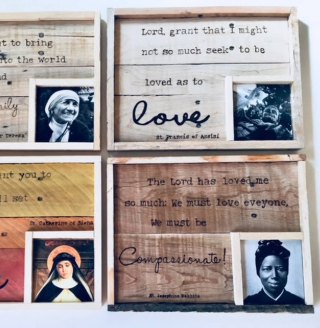 et to bring
nto the world
nd
ily
r Teresa
Lord, grant that I might
not so much seek to be
loved as to
love
St Francis of Assisi
nt you to
ll set
St Catherine of Siena
The Lord has loved me
so much: We must love eveyone,
We must be
Compassionate!
St Josephine Bakhita